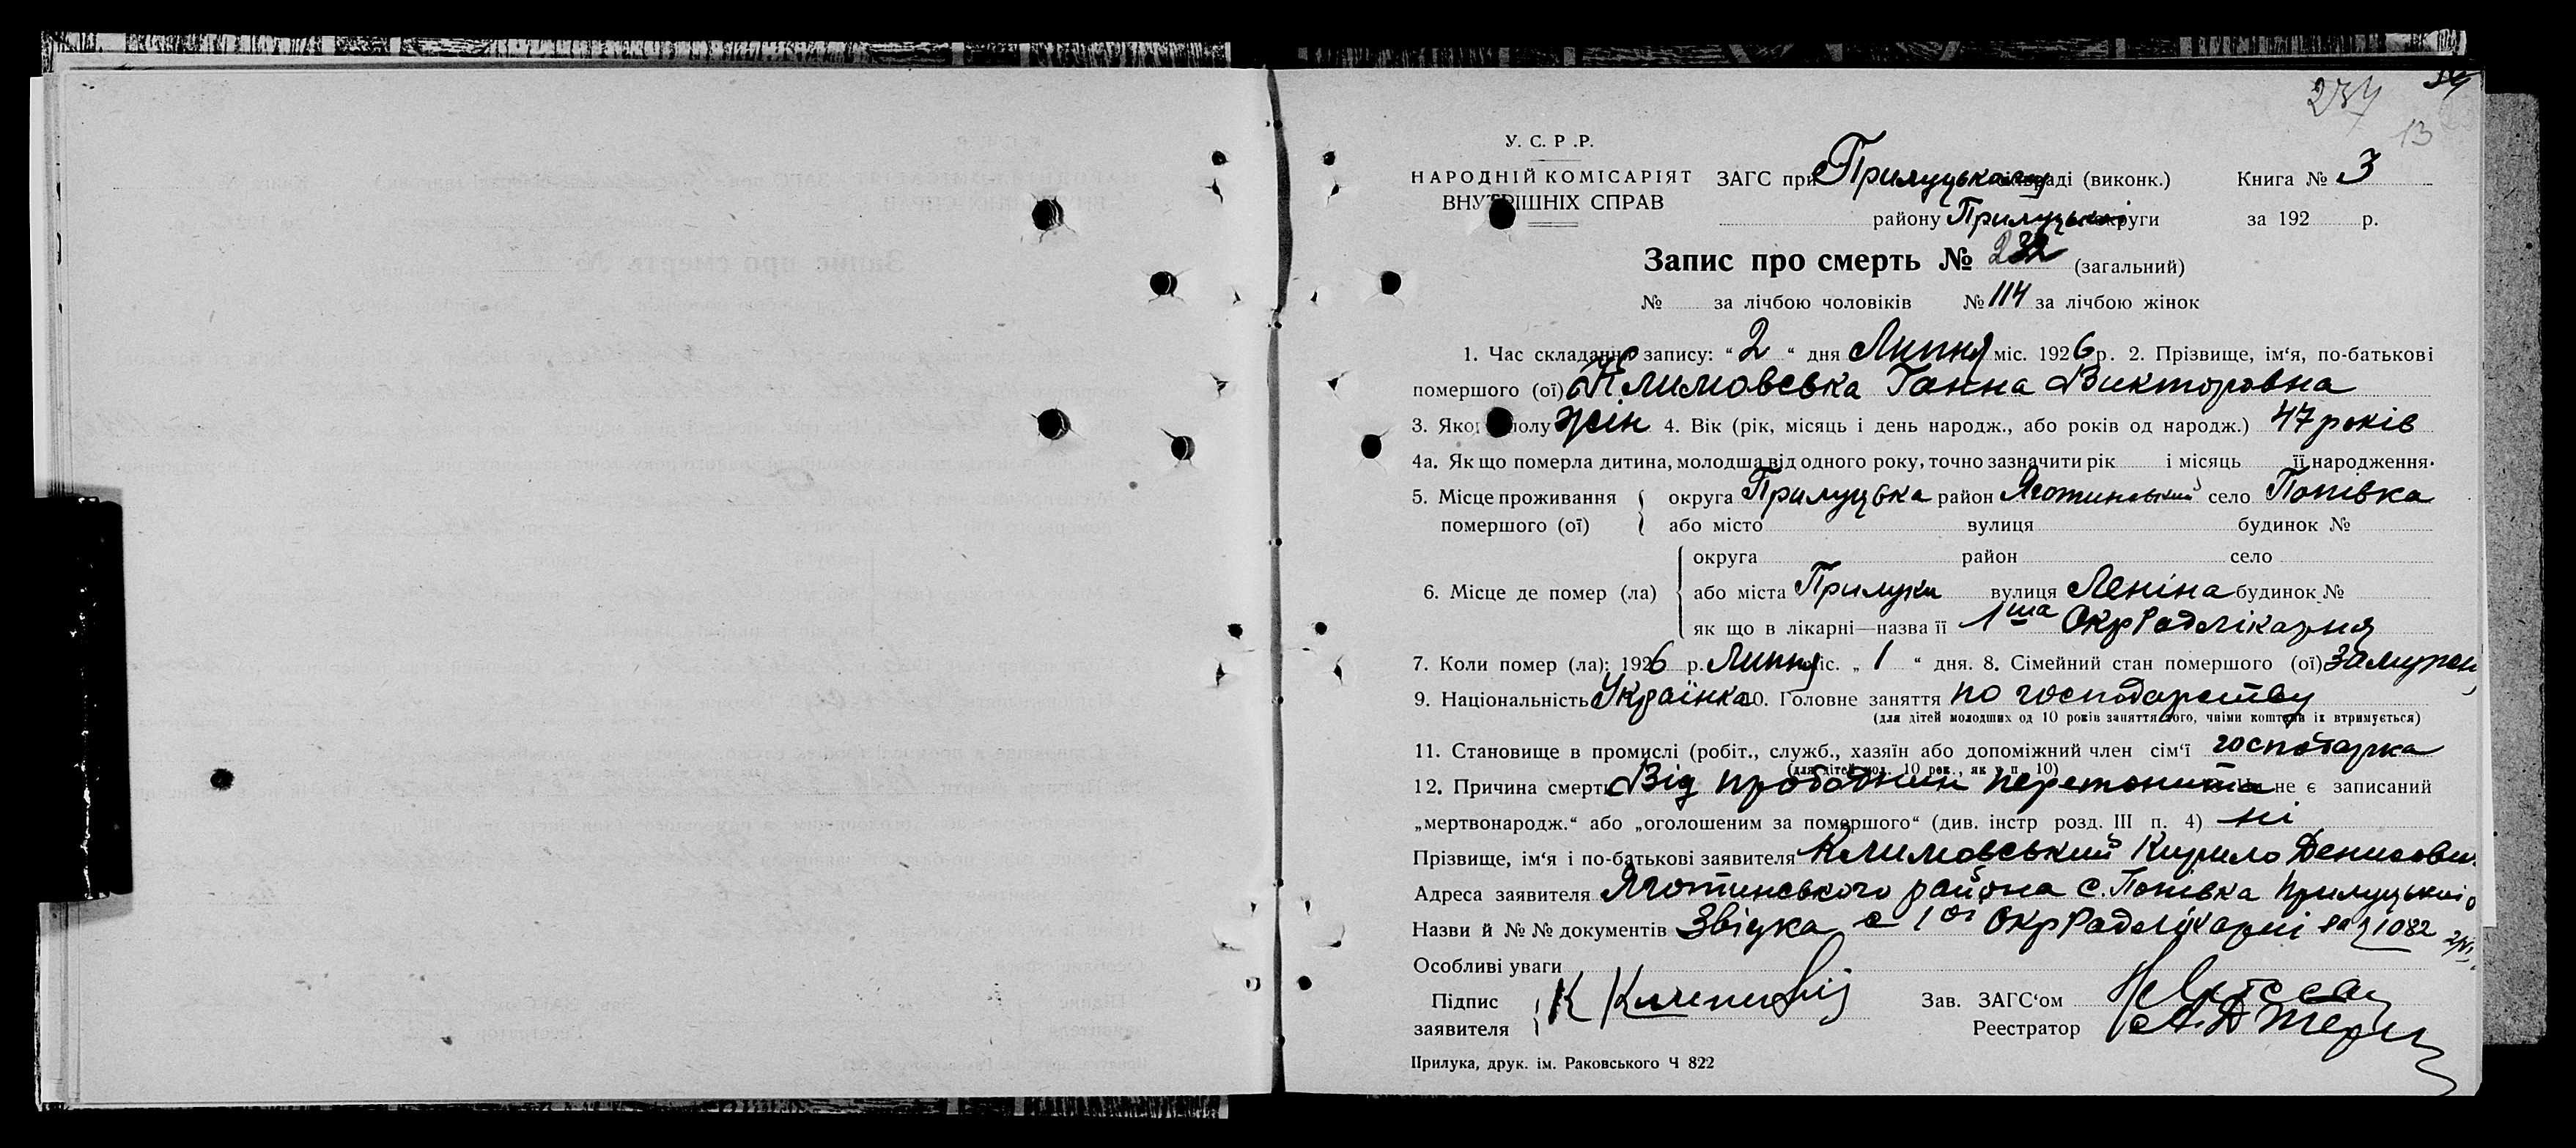 234
13
У. С. Р .Р.
НАРОДНІЙ КОМІСАРІЯТ
ВНУТРІШНІХ СПРАВ
ЗАГС при Прилуцькому раді (виконк.) Книга № 3
району Прилуцької округи за 192 р.
Запис про смерть № 232 (загальний)
№ за лічбою чоловіків № 114 за лічбою жінок
1. Час складання запису: “ 2 “ дня Липня міс. 1926 р. 2. Прізвище, ім‘я, по-батькові
помершого (ої) Климовська Ганна Викторовна
3. Якого полу жін 4. Вік (рік, місяць і день народж., або років од народж.) 47 років
4а. Як що померла дитина, молодша від одного року, точно зазначити рік і місяць її народження.
5. Місце проживання округа Прилуцька район Яготинський село Попівка
помершого (ої) або місто вулиця будинок №
округа район село
6. Місце де помер (ла) або міста Прилуки вулиця Леніна будинок №
як що в лікарні—назва її 1ша ОкрРадлікарня
7. Коли помер (ла): 1926 р. Липня міс. „ 1 “ дня. 8. Сімейний стан помершого (ої) замужня
9. Національність Українка 10. Головне заняття по господарству
(для дітей молодших од 10 років заняття того, чиїми коштами їх втримується)
11. Становище в промислі (робіт., служб., хазяїн або допоміжний член сім‘ї господарка
(для дітей мол. 10 рок., як у п. 10)
12. Причина смерти Від перетонита не є записаний
„мертвонародж.“ або „оголошеним за помершого“ (див. інстр розд. III п. 4) ні
Прізвище, ім‘я і по-батькові заявителя Климовський Кирило Денисович
Адреса заявителя Яготинського района с. Попівка Прилуцької о
Назви й №№ документів Звідка с 1ої ОкрРадлікарні за № 1082
Особливі уваги
Підпис К Климовській Зав. ЗАГС‘ом
заявителя Реестратор
Прилука, друк. ім. Раковського Ч 822